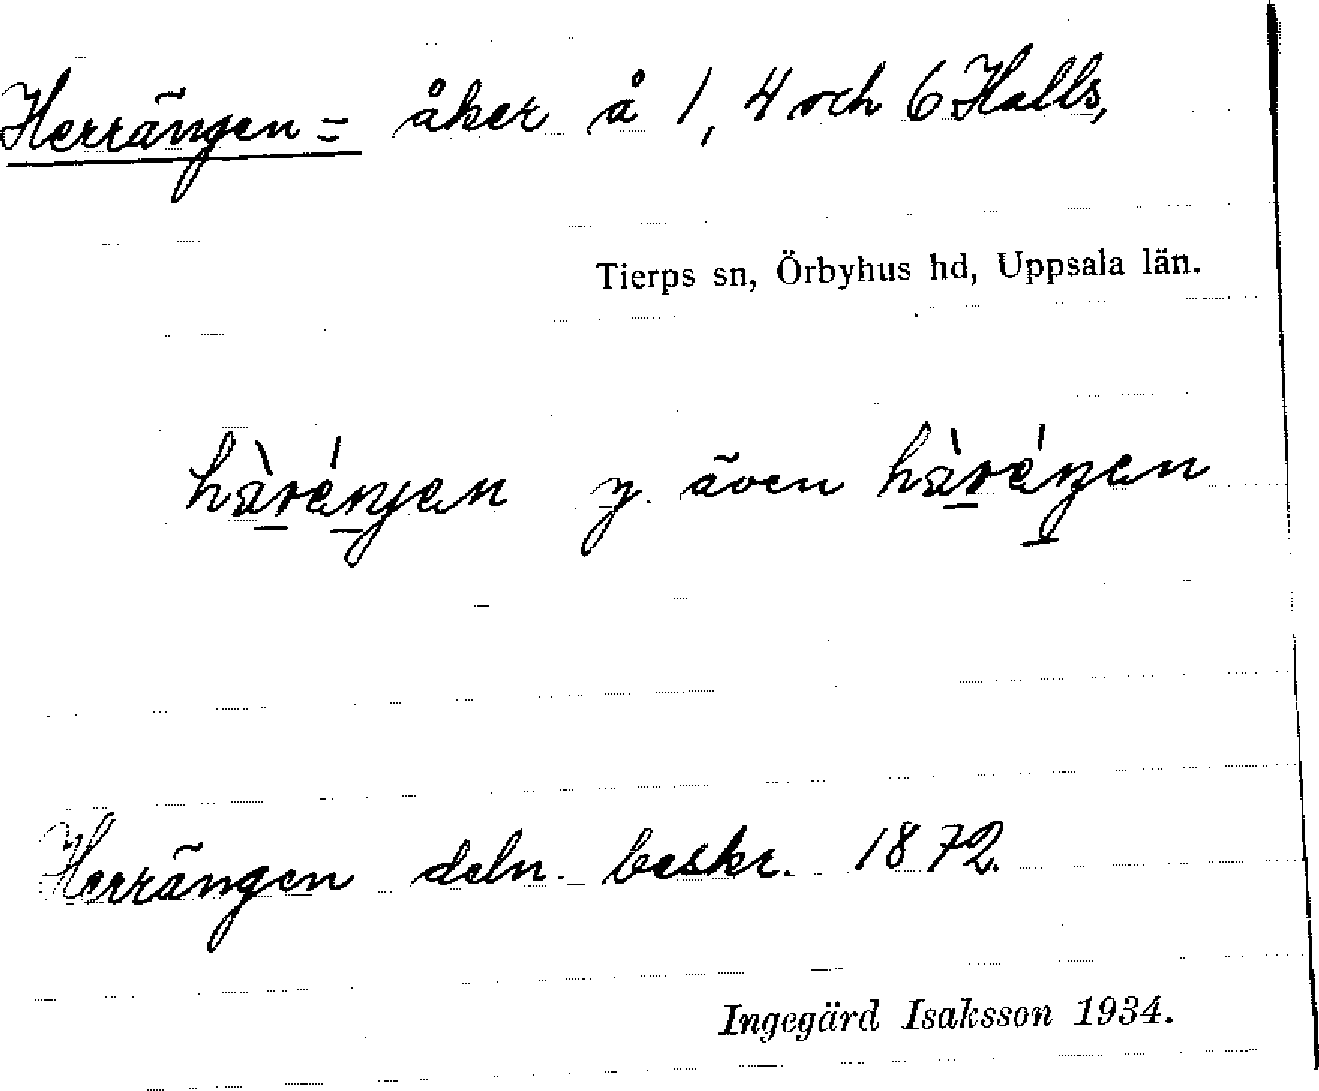 Herrängen = åker å 1, 4 och 6 Halls,
Tierps sn, Örbyhus hd, Uppsala län.
hàrénjen y. även hàrénen
Herrängen deln. beskr. 1872.
Ingegärd Isaksson 1934.